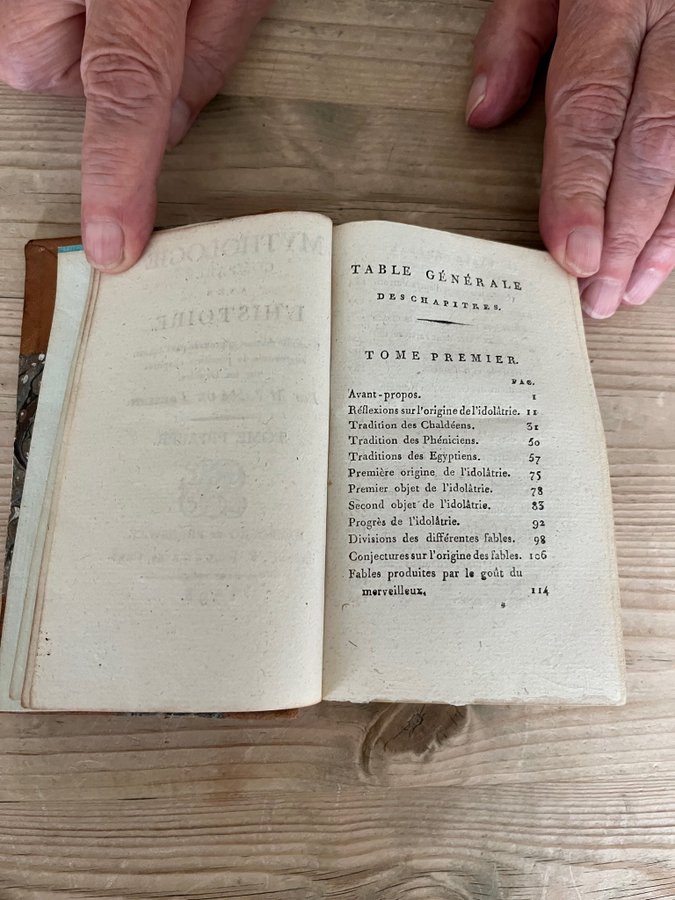 MYTHOLOGIE
L'HISTOIRE.
TOME PREMIER.
TABLE GÉNÉRALE
DES CHAPITRES.
TOME PREMIER.
PAG.
Avant-propos. 1
Réflexions sur l'origine de l'idolâtrie. 11
Tradition des Chaldéens. 31
Tradition des Phéniciens. 50
Traditions des Egyptiens. 57
Première origine de l'idolâtrie. 75
Premier objet de l'idolâtrie. 78
Second objet de l'idolâtrie. 83
Progrès de l'idolâtrie. 92
Divisions des différentes fables. 98
Conjectures sur l'origine des fables. 106
Fables produites par le goût du
merveilleux. 114
*